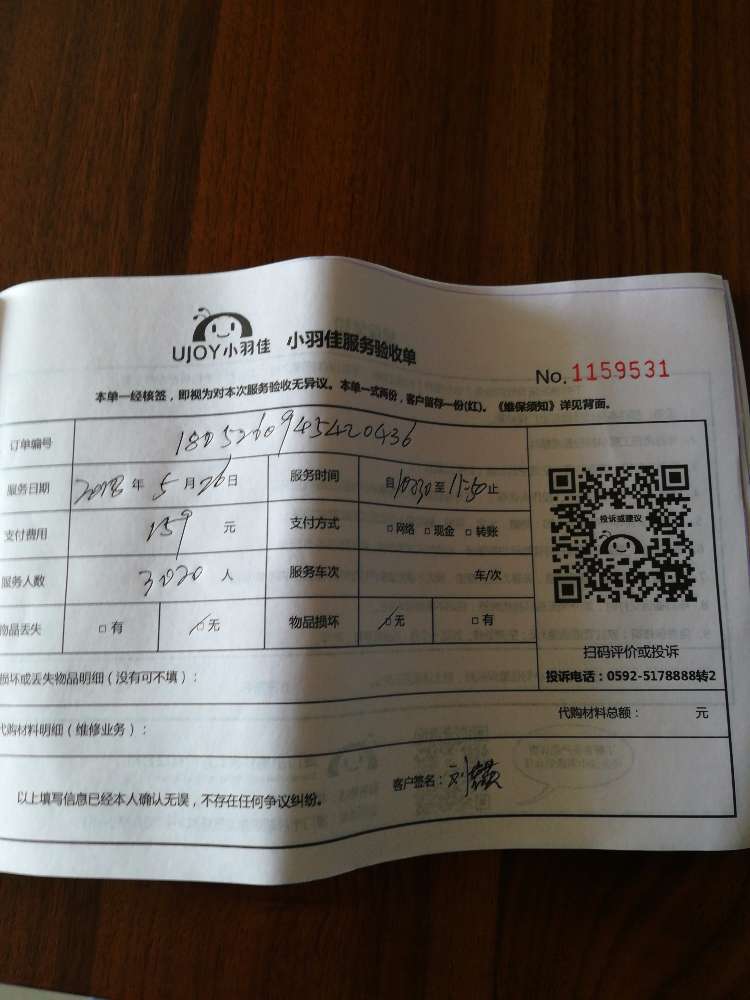 UJOY小羽佳 小羽佳服务验收单
No. 1159531
本单一经核签，即视为对本次服务验收无异议。本单一式两份，客户留存一份(红)。《维保须知》详见背面。
订单编号 1805260945420436
服务日期 2018 年 5 月 26 日 服务时间 自 10:30 至 11:50 止
支付费用 159 元 支付方式 □ 网络 □ 现金 □ 转账
服务人数 3020 人 服务车次 车/次
物品丢失 □ 有 □ 无 物品损坏 □ 无 □ 有
投诉或建议
扫码评价或投诉
投诉电话：0592-5178888转2
损坏或丢失物品明细（没有可不填）：
代购材料明细（维修业务）： 代购材料总额： 元
以上填写信息已经本人确认无误，不存在任何争议纠纷。 客户签名：刘